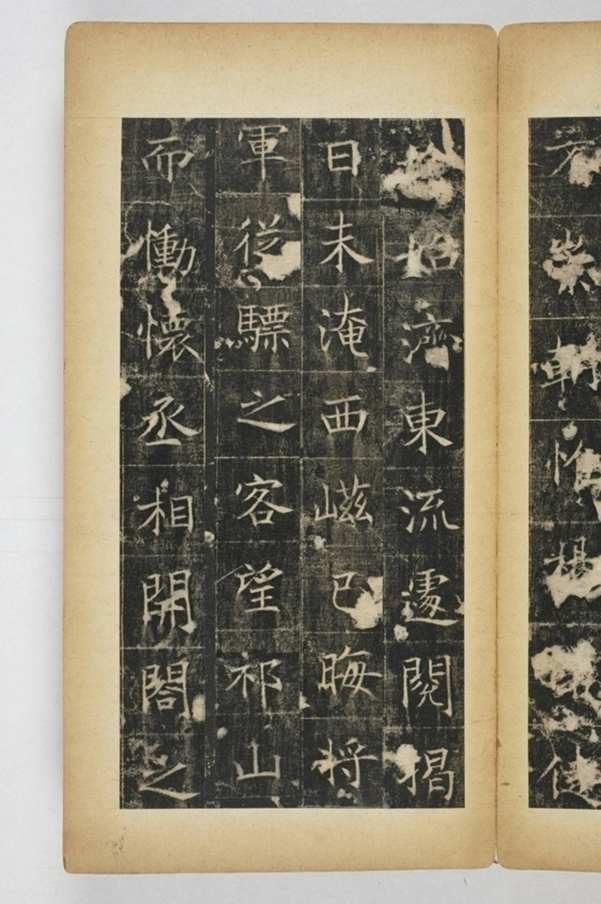 崇
始濟東流遽閱揭
日未淹西嵫已晦将
軍從驃之客望祁山
而慟懷丞相開閤之